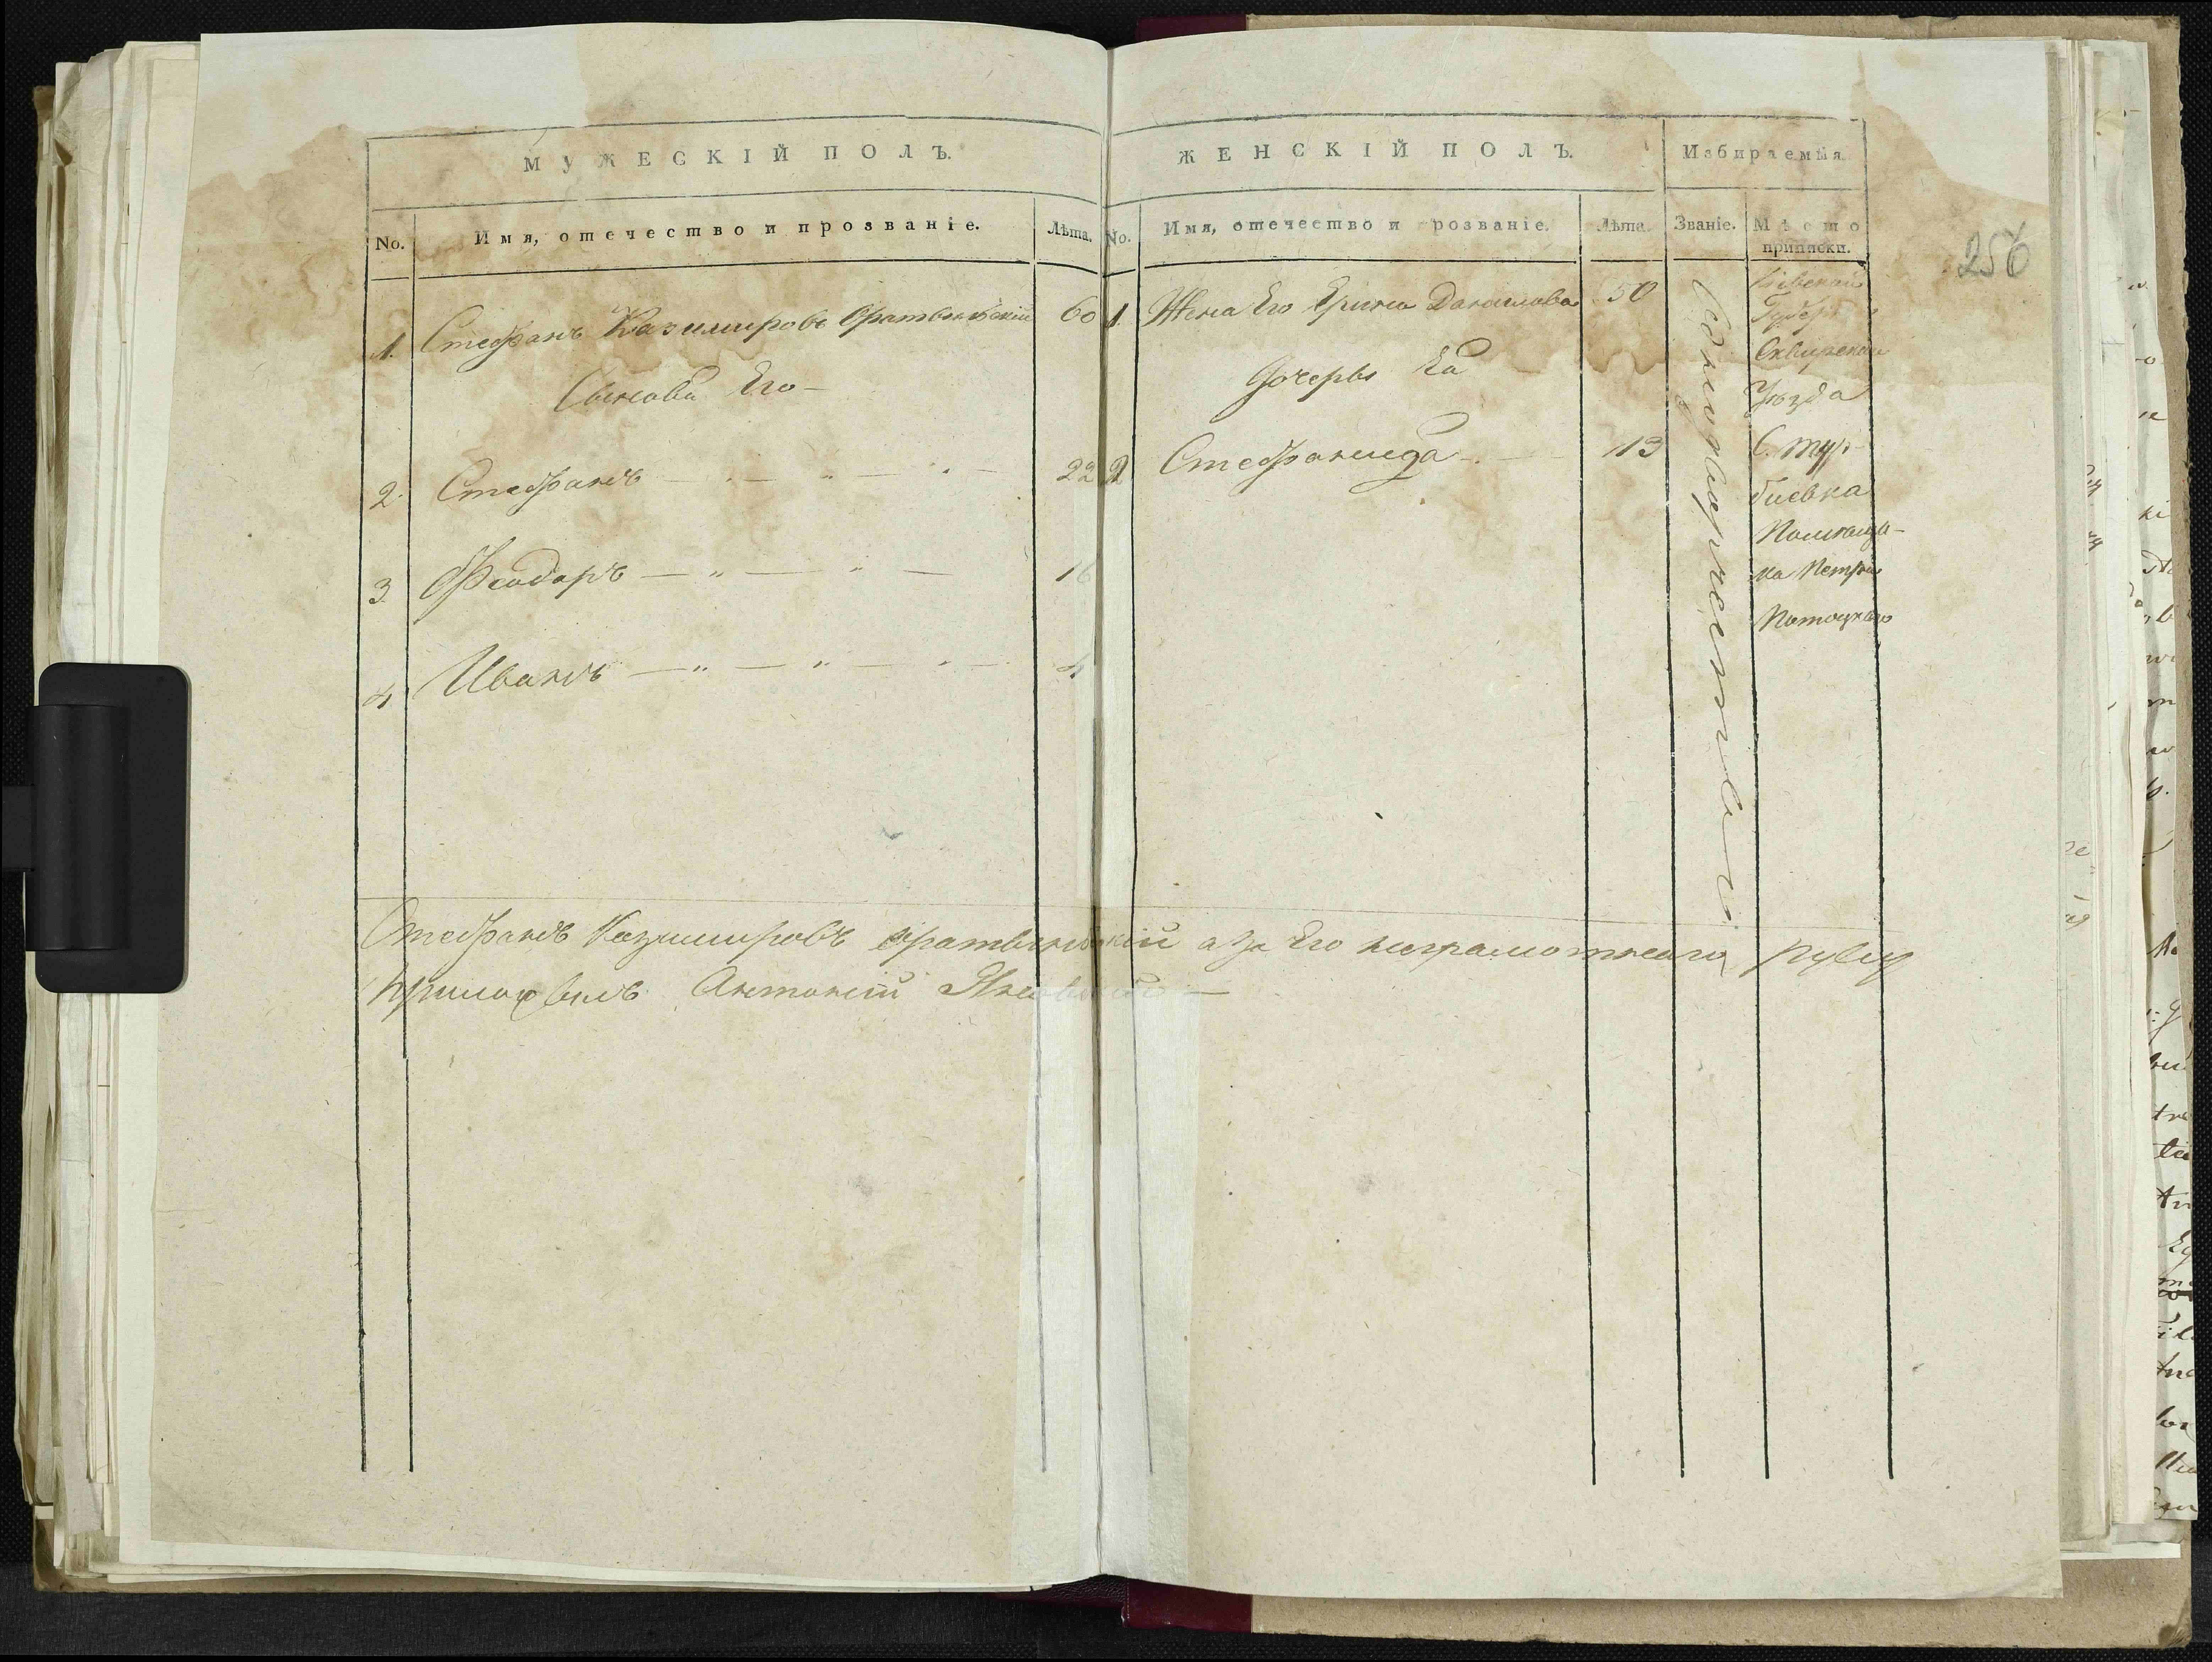 МУЖЕСКІЙ ПОЛЪ.
No. Имя, отечество и прозваніе. Лѣта.
1. Стефанъ Казимировъ Братковскій 60
Сыновья Его —
2. Стефанъ 22
3. Феодоръ 16
4 Иванъ 4
ЖЕНСКІЙ ПОЛЪ. Избираемыя
No. Имя, отечество и розваніе. Лѣта. Званіе. Мѣсто приписки.
1. Жена Его Ерина Данилова 50
Дочерь Ея
2 Стефанида 13
Однодворческое
Кіевской
Губер
Сквирскаго
Уѣзда
С. Тур-
биевка
Помѣщи-
ка Петра
Потоцкаго
256
Стефанъ Казимировъ а за Его неграмотнаго руку
приложилъ Антоній